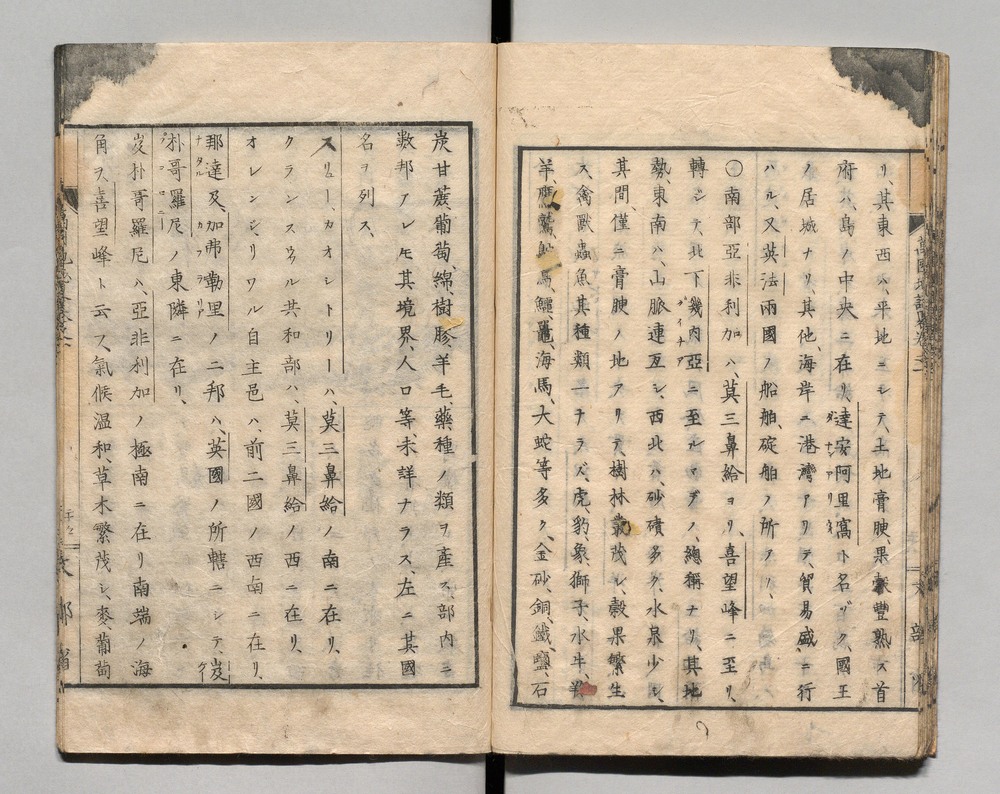 リ、其東西ハ、平地ニシテ、土地膏腴、果穀豐熟ス首
府ハ、島ノ中央ニ在リ、達安阿里窩ト名ヅク、國王
ノ居城ナリ、其他、海岸ニ港灣アリテ、貿易盛ニ行
ハル、又英法兩國ノ船舶、碇舶ノ所アリ、
○南部亞非利加ハ、莫三鼻給ヨリ、喜望峰ニ至リ、
轉シテ、北下幾內亞ニ至ルマデノ、總稱ナリ、其地
勢東南ハ、山脈連亙シ、西北ハ、砂磧多ク、水泉少シ、
其間、僅ニ膏腴ノ地アリテ、樹林叢茂シ、穀果繁生
ス、禽獸蟲魚其種類一ナラズ、虎、豹、象、獅子、水牛、
羊、鷲、馬、鱷、海馬、大蛇等多ク、金砂、銅、鐵、鹽、石
炭甘蔗葡萄、綿、樹膠、羊毛、藥種ノ類ヲ產ス、部內ニ
數邦アレモ其境界、人口等未詳ナラス、左ニ其國
名ヲ列ス、
スリユーカオシトリーハ、莫三鼻給ノ南ニ在リ、
クランスウル共和部ハ、莫三鼻給ノ西ニ在リ、
オレンジ、リワル自主邑ハ、前二國ノ西南ニ在リ、
那達及加弗勒里ノ二邦ハ、英國ノ所轄ニシテ、岌
朴哥羅尼ノ東隣ニ在リ、
岌朴哥羅尼ハ、亞非利加ノ極南ニ在リ南端ノ海
角ヲ、喜望峰ト云フ、氣候溫和、草木繁茂シ、麥、葡萄
文部省